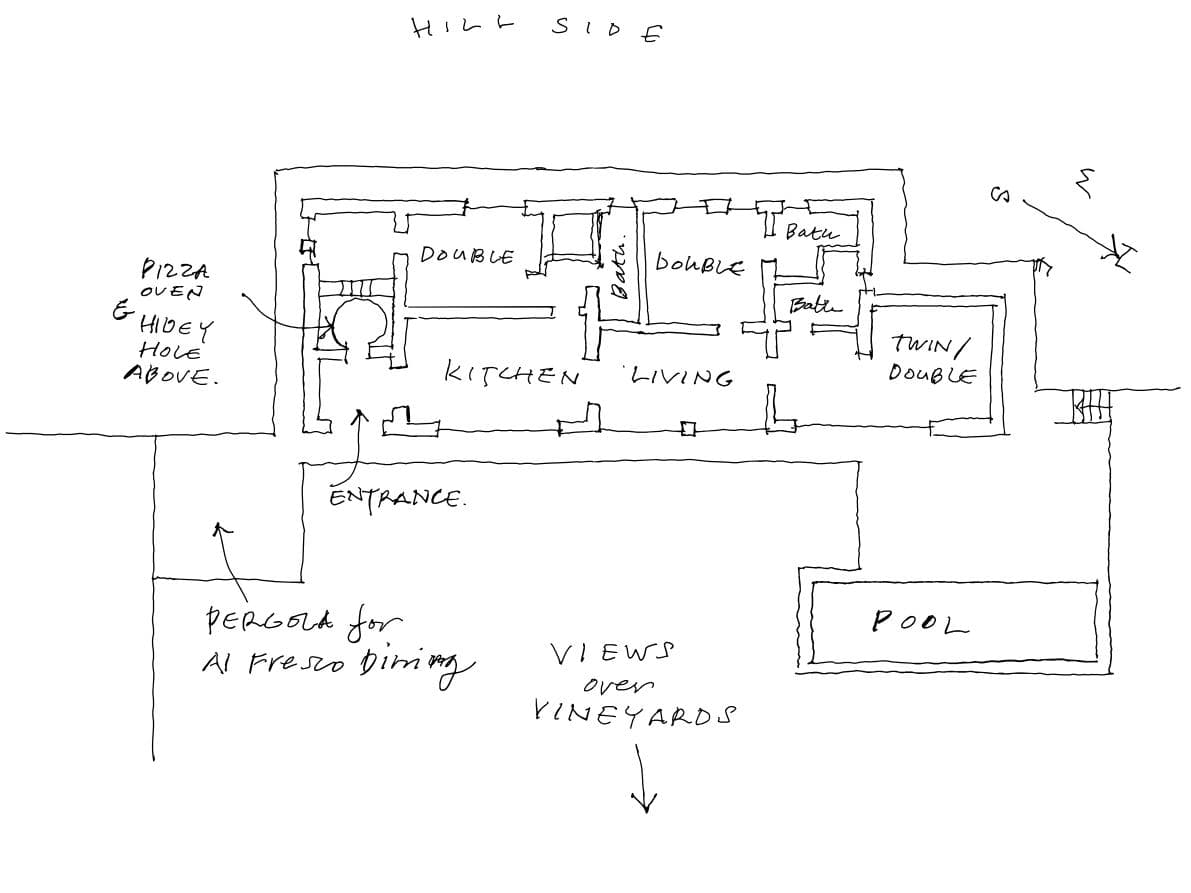 HILL SIDE
S
DOUBLE
Bath.
DOUBLE
Bath
Bath
PIZZA
OVEN
&
HIDEY
HOLE
ABOVE.
KITCHEN
LIVING
TWIN/
DOUBLE
ENTRANCE.
PERGOLA for
Al Fresco Dining
POOL
VIEWS
over
VINEYARDS